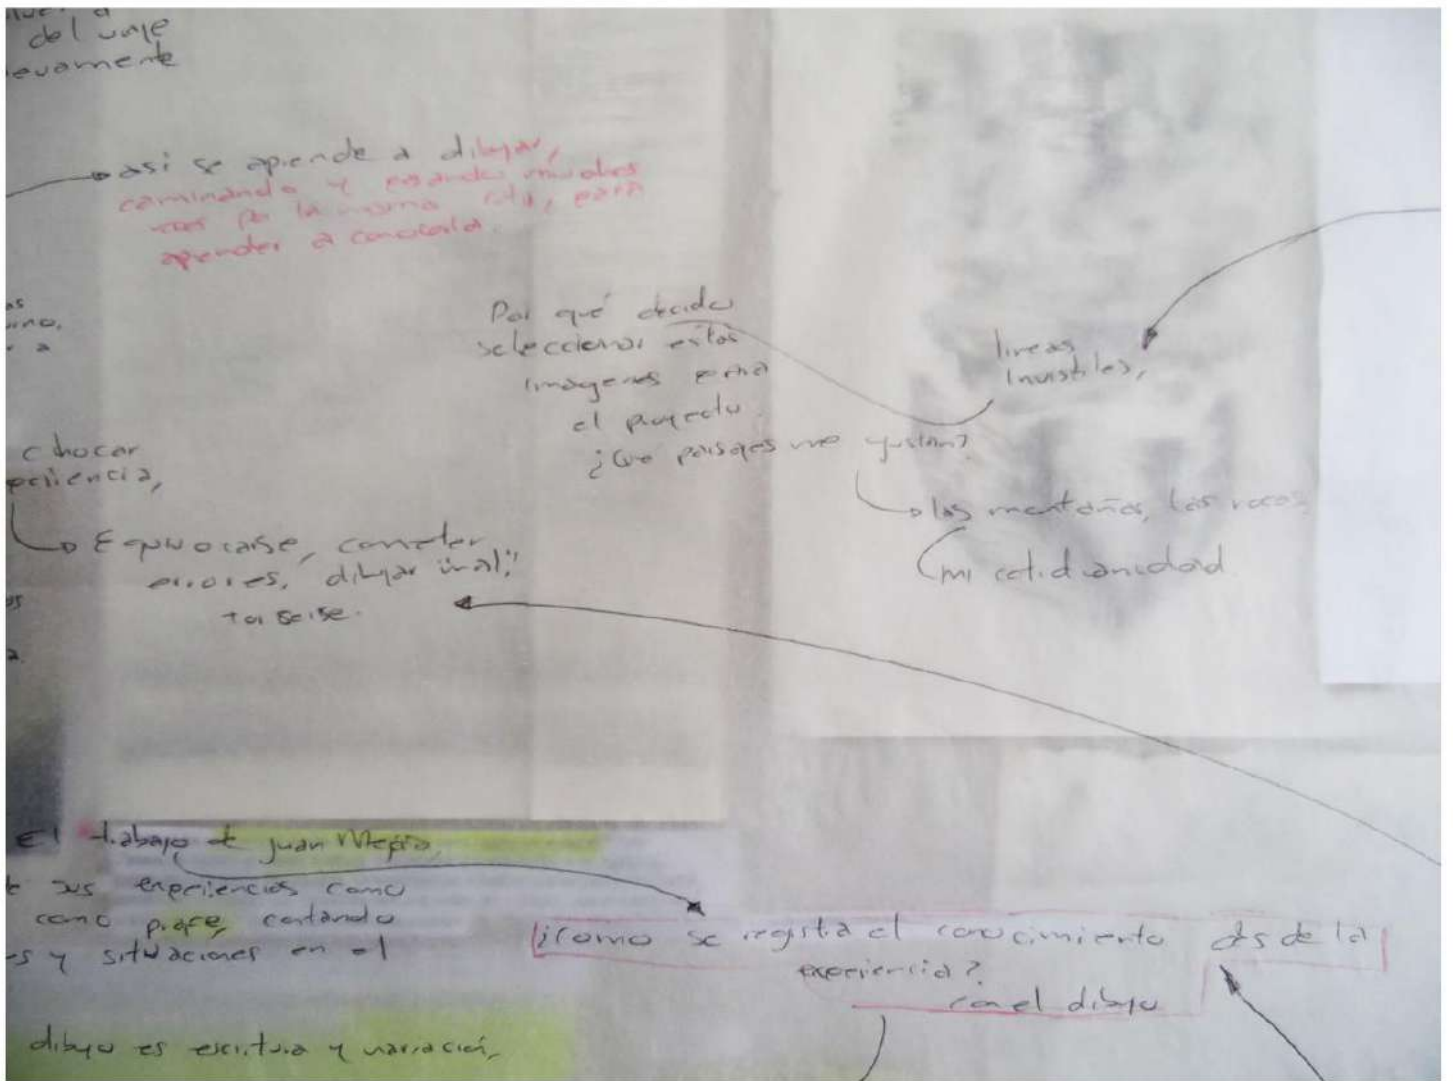 del viaje
evamente
así se aprende a dibujar,
caminando y pasando muchas
veces por la misma ruta, para
aprender a conocerla.
Por qué decido
seleccionar estas
imagenes para
el proyecto.
¿Qué paisajes me gustan?
lineas
invisibles,
las montañas, las rocas,
mi cotidianidad
chocar
periencia,
Equivocarse, cometer
errores, dibujar "mal",
torserse.
El trabajo de Juan Mejía,
sus experiencias como
como profe, contando
s y situaciones en el
dibujo es escritura y narración,
¿Como se registra el conocimiento desde la
experiencia?
con el dibujo